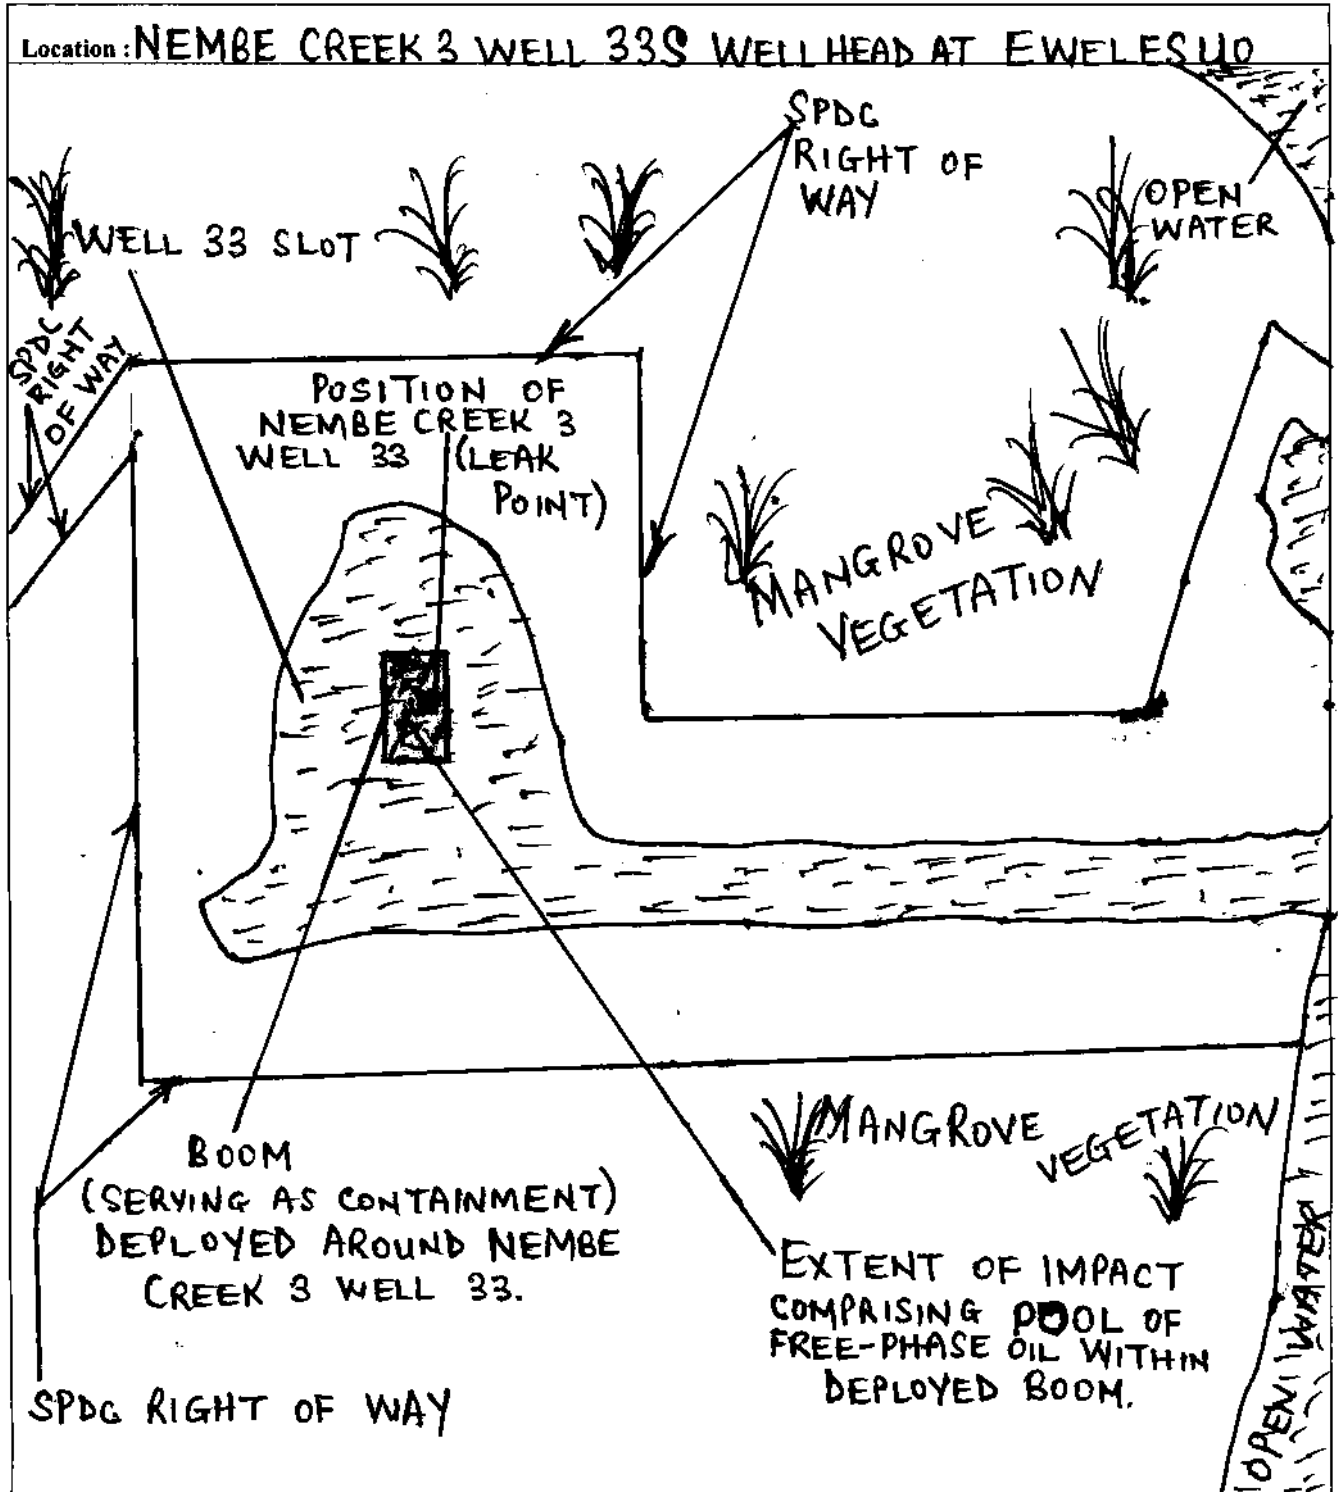 Location : NEMBE CREEK 3 WELL 33S WELLHEAD AT EWELESUO
SPDC
RIGHT OF
WAY
OPEN
WATER
WELL 33 SLOT
SPDC
RIGHT
OF WAY
POSITION OF
NEMBE CREEK 3
WELL 33 (LEAK
POINT)
MANGROVE
VEGETATION
MANGROVE VEGETATION
BOOM
(SERVING AS CONTAINMENT)
DEPLOYED AROUND NEMBE
CREEK 3 WELL 33.
EXTENT OF IMPACT
COMPRISING POOL OF
FREE-PHASE OIL WITHIN
DEPLOYED BOOM.
SPDC RIGHT OF WAY
OPEN WATER